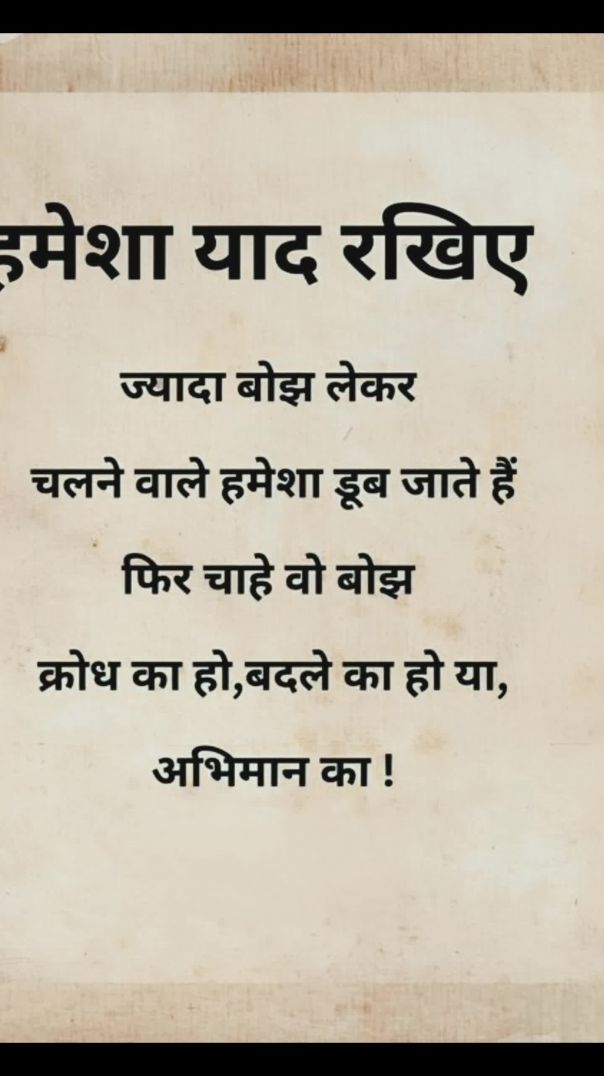 हमेशा याद रखिए
ज्यादा बोझ लेकर
चलने वाले हमेशा डूब जाते हैं
फिर चाहे वो बोझ
क्रोध का हो,बदले का हो या,
अभिमान का !